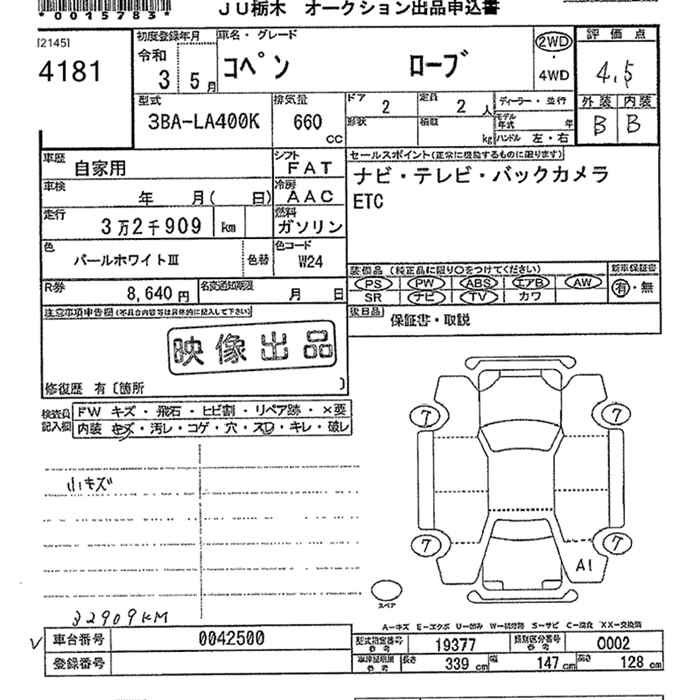 *0015783*
JU栃木 オークション出品申込書
[2145]
4181
初度登録年月
令和
3 5月
車名・グレード
コペン ローブ
2WD
4WD
評価点
4.5
外装 内装
B B
型式
3BA-LA400K
排気量
660 CC
ドア 2
定員 2 人
形状
積載 kg
ディーラー・並行
モデル年式 年
ハンドル 左・右
車歴 自家用
シフト FAT
車検 年 月( 日)
冷房 AAC
走行 3万2千909 km
燃料 ガソリン
色 パールホワイトⅢ
色替
色コード W24
セールスポイント(正常に機能するものに限ります)
ナビ・テレビ・バックカメラ
ETC
R券 8,640円
名変通知期限 月 日
装備品(純正品に限り○をつけてください)
PS PW ABS エアB AW
SR ナビ TV カワ
新車保証書
有・無
後日品 保証書・取説
注意事項申告欄(不具合内容等は具体的に記入して下さい)
映像出品
修復歴 有〔箇所 〕
検査員記入欄
FW キズ・飛石・ヒビ割・リペア跡・×要
内装 キズ・汚レ・コゲ・穴・スレ・キレ・破レ
小キズ
32909KM
7 7
7 7
A1
スペア
A-キズ E-エクボ U-凹み W-補修跡 S-サビ C-腐食 XX-交換済
車台番号 0042500
登録番号
型式指定番号 参考 19377
類別区分番号 参考 0002
車検証記載 参考 長さ 339 cm 幅 147 cm 高さ 128 cm